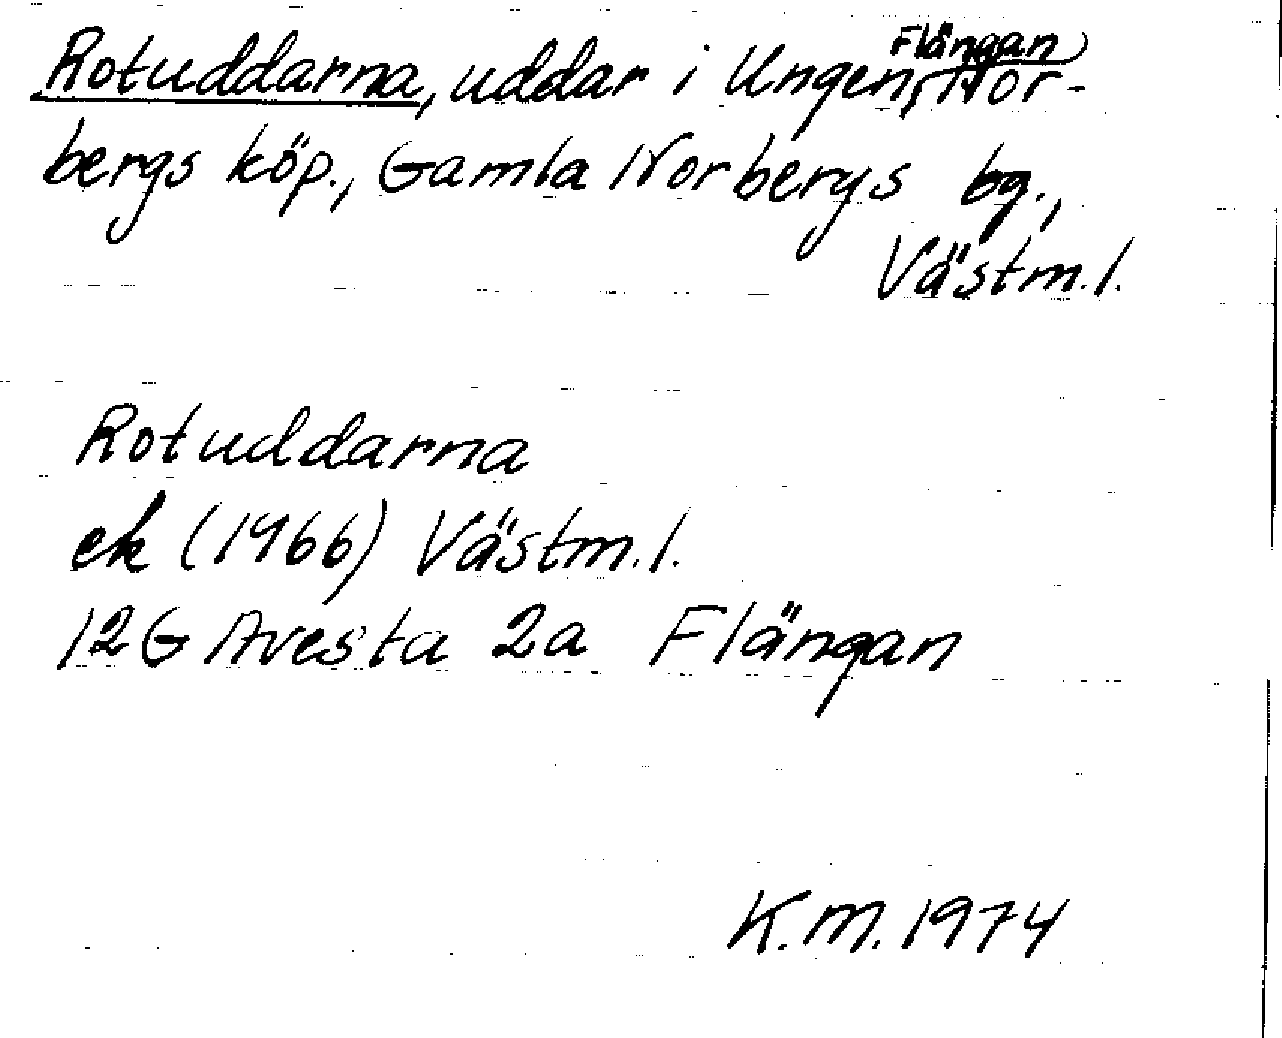 Rotuddarna, uddar i Ungen, Flängan, Nor-
bergs köp., Gamla Norbergs bg.,
Västm.l.
Rotuddarna
ek (1966) Västm.l.
12G Avesta 2a Flängan
K.M. 1974